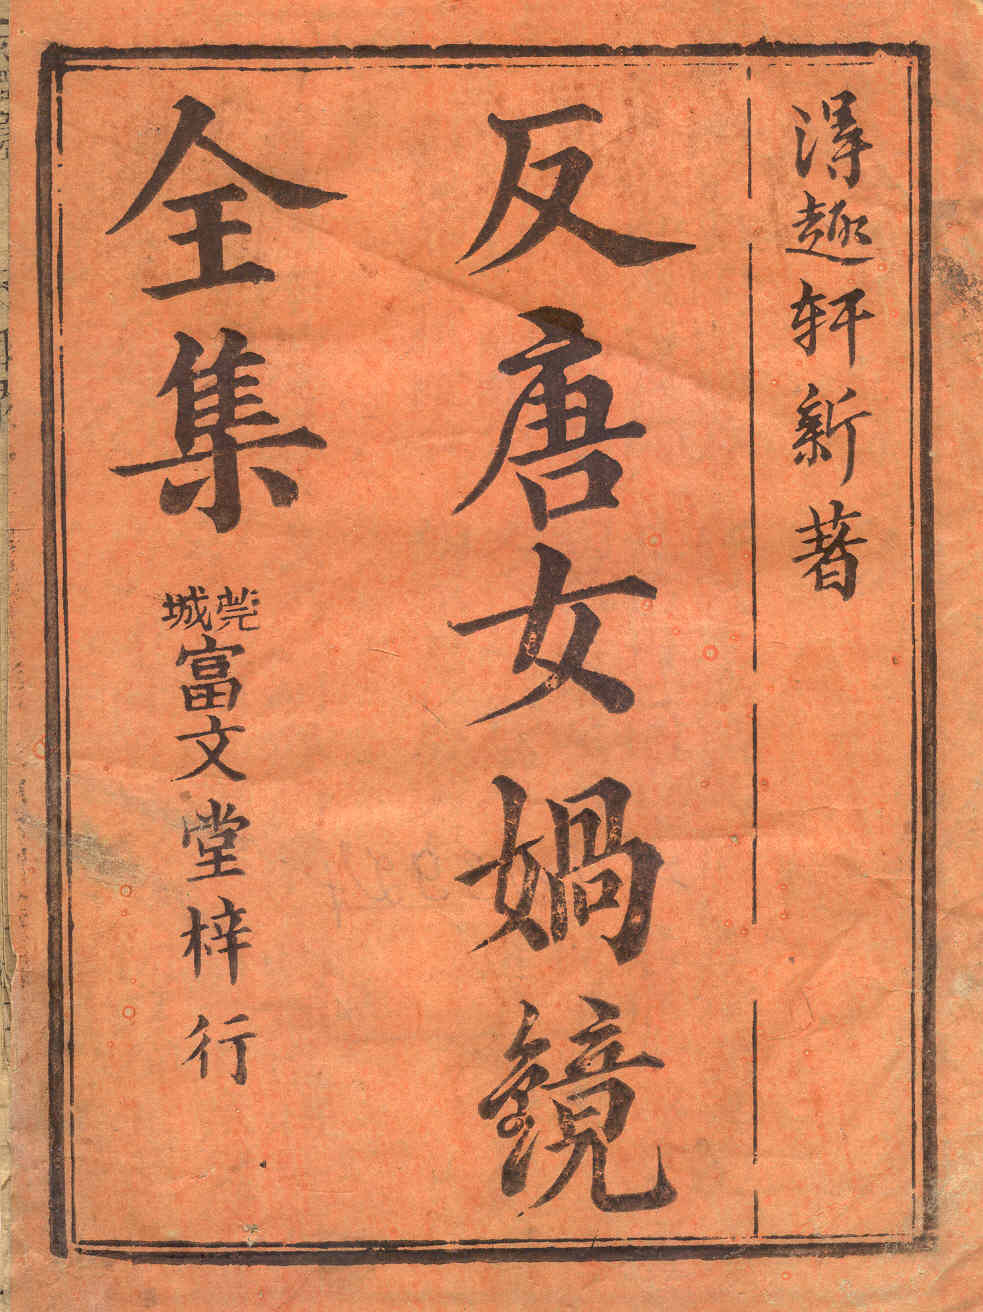 淂趣軒新著
反唐女媧鏡
全集
莞城
富文堂梓行